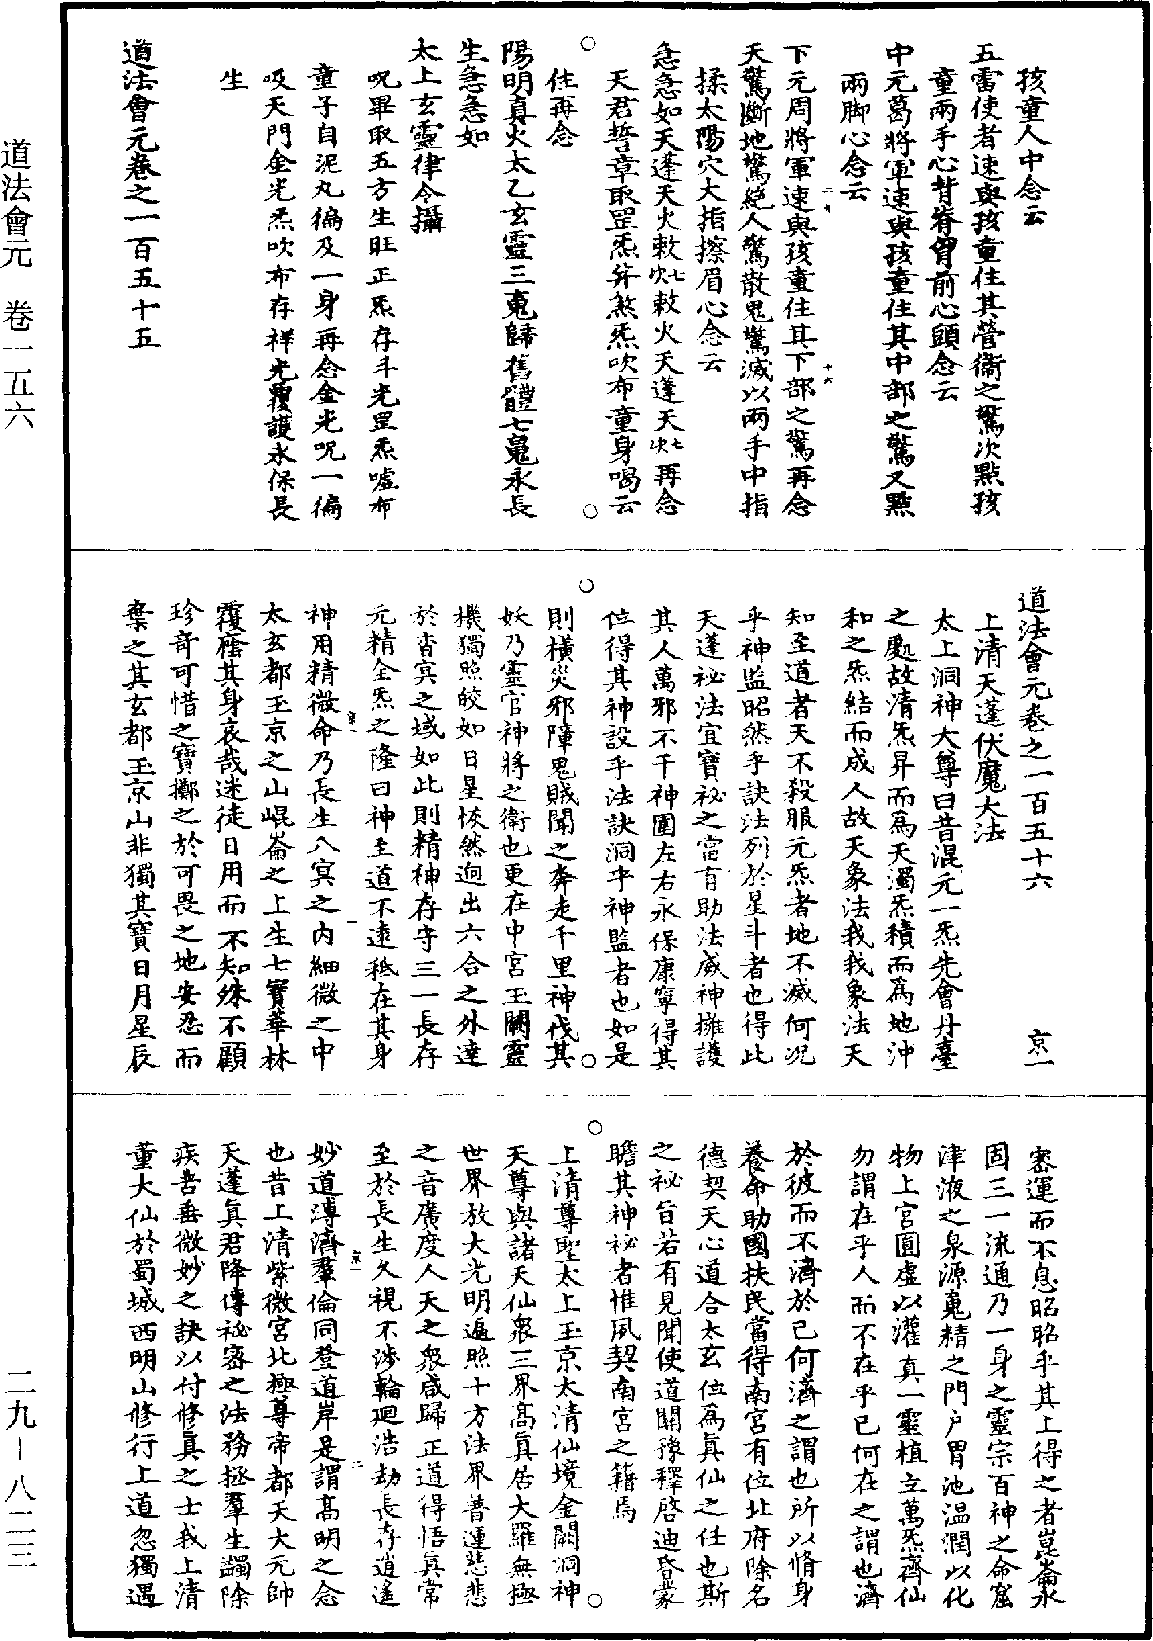 道法會元　卷一五六
二九－八二三
孩童人中念云
五雷使者速與孩童住其營衛之驚次點孩
童兩手心背脊胷前心頭念云
中元葛將軍速與孩童住其中部之驚又點
兩脚心念云
下元周將軍速與孩童住其下部之驚再念
天驚斷地驚絕人驚散鬼驚滅以兩手中指
揉太陽穴大指擦眉心念云
急急如天蓬天火敕吹七敕火天蓬天吹七再念
天君誓章取罡炁并煞炁吹布童身喝云
住再念
陽明真火太乙玄靈三䰟歸舊體七鬼永長
生急急如
太上玄靈律令攝
呪畢取五方生旺正炁存斗光罡炁噓布
童子自泥丸徧及一身再念金光呪一徧
吸天門金光炁吹布存祥光覆護永保長
生
道法會元卷之一百五十五
道法會元卷之一百五十六　京一
上清天蓬伏魔大法
太上洞神大尊曰昔混元一炁先會丹臺
之處故清炁昇而為天濁炁積而為地沖
和之炁結而成人故天象法我我象法天
知至道者天不殺服元炁者地不滅何況
乎神監昭然乎訣法列於星斗者也得此
天蓬祕法宜寶祕之當有助法威神擁護
其人萬邪不干神圍左右永保康寧得其
位得其神設乎法訣洞乎神監者也如是
則橫災邪障鬼賊聞之奔走千里神伐其
妖乃靈官神將之衛也更在中宮玉闕靈
機獨照皎如日星恢然逈出六合之外達
於杳冥之域如此則精神存守三一長存
元精全炁之隆曰神至道不遠秪在其身
神用精微命乃長生八冥之內細微之中
太玄都玉京之山崐崙之上生七寶華林
覆蔭其身哀哉迷徒日用而不知殊不顧
珍奇可惜之寶擲之於可畏之地安忍而
棄之其玄都玉京山非獨其寶日月星辰
密運而不息昭昭乎其上得之者崑崙永
固三一流通乃一身之靈宗百神之命窟
津液之泉源䰟精之門户胃池溫潤以化
物上宮圓虛以灌真一靈植立萬炁齊仙
勿謂在乎人而不在乎已何在之謂也濟
於彼而不濟於已何濟之謂也所以脩身
養命助國扶民當得南宮有位北府除名
德契天心道合太玄位為真仙之任也斯
之祕旨若有見聞使道關豫釋啓迪昏蒙
瞻其神祕者惟夙契南宮之籍焉
上清尊聖太上玉京太清仙境金闕洞神
天尊與諸天仙衆三界高真居大羅無極
世界放大光明遍照十方法界普運悲悲
之音廣度人天之衆咸歸正道得悟真常
至於長生久視不涉輪迴浩劫長存逍遙
妙道溥濟羣倫同登道岸是謂高明之念
也昔上清紫微宮北極尊帝都天大元帥
天蓬真君降傳祕密之法務拯羣生蠲除
疾苦垂微妙之訣以付修真之士我上清
董大仙於蜀城西明山修行上道忽獨遇